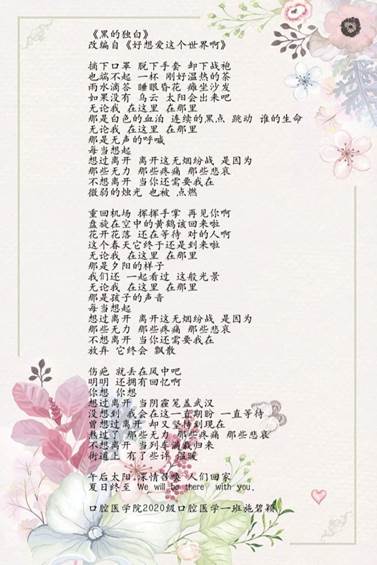 《黑的独白》
改编自《好想爱这个世界啊》
摘下口罩 脱下手套 卸下战袍
也端不起 一杯 刚好温热的茶
雨水滴答 睡眼昏花 瘫坐沙发
如果没有 乌云 太阳会出来吧
无论我 在这里 在那里
那是白色的血泊 连续的黑点 跳动 谁的生命
无论我 在这里 在那里
那是无声的呼喊
每当想起
想过离开 离开这无烟纷战 是因为
那些无力 那些疼痛 那些悲哀
不想离开 当你还需要我在
微弱的烛光 也被 点燃
重回机场 挥挥手掌 再见你啊
盘旋在空中的黄鹤该回来啦
花开花落 还在等待 对的人啊
这个春天它终于还是到来啦
无论我 在这里 在那里
那是夕阳的样子
我们还 一起看过 这般光景
无论我 在这里 在那里
那是孩子的声音
每当想起
想过离开 离开这无烟纷战 是因为
那些无力 那些疼痛 那些悲哀
不想离开 当你还需要我在
放弃 它终会 飘散
伤疤 就丢在风中吧
明明 还拥有回忆啊
你想 你想
想过离开 当阴霾笼盖武汉
没想到 我会在这一直期盼 一直等待
曾想过离开 却又坚持到现在
熬过了 那些无力 那些疼痛 那些悲哀
不想离开 当列车满载归来
街道上 有了些许 温暖
午后太阳 深情召唤 人们回家
夏日终至 We will be there with you.
口腔医学院2020级口腔医学一班施碧颖